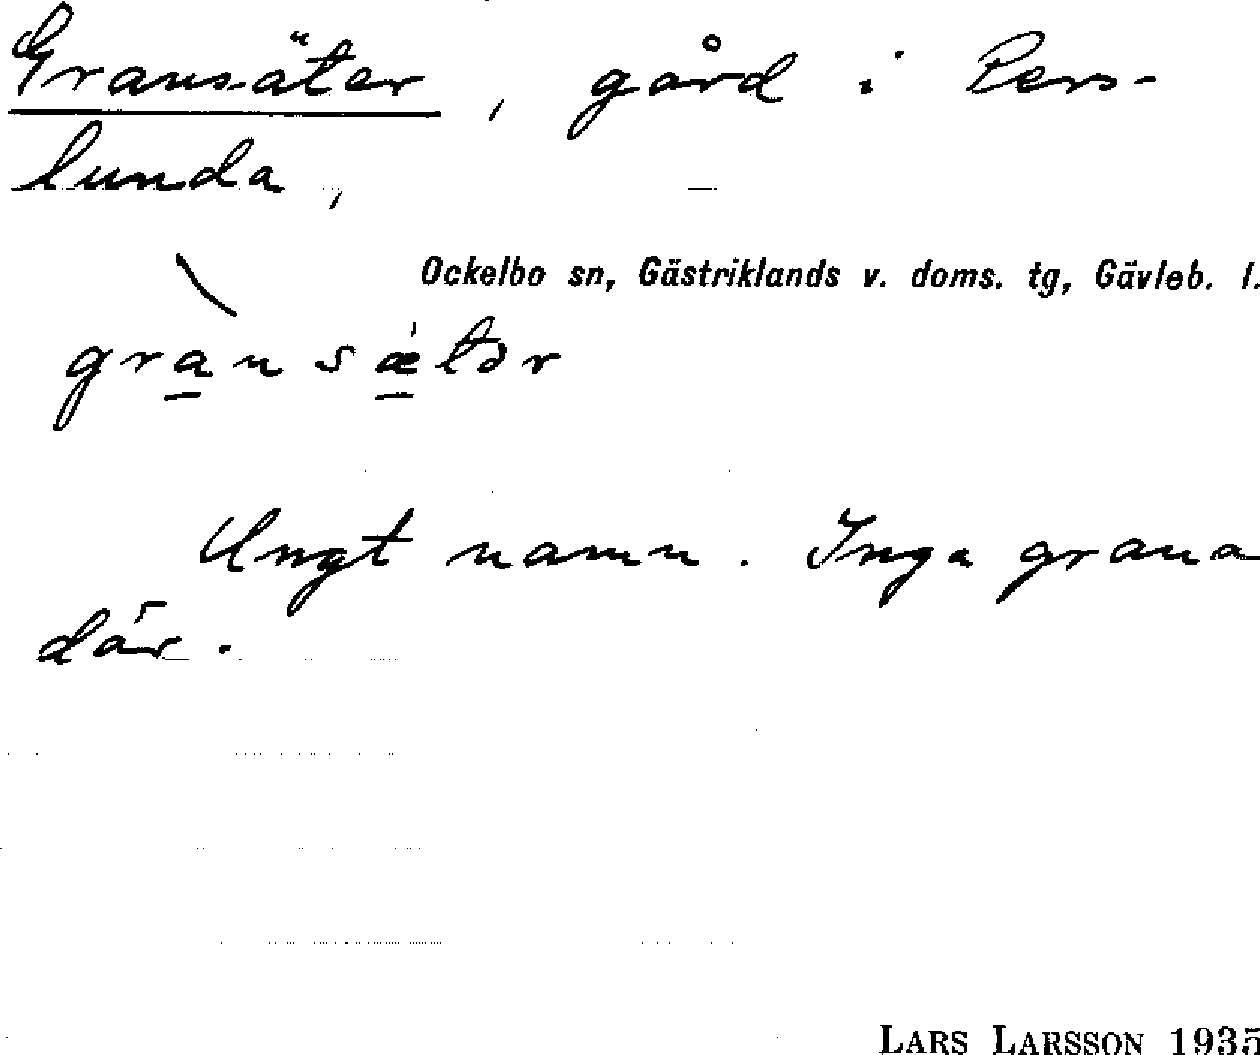 Gransäter, gård i Pers-
lunda,
Ockelbo sn, Gästriklands v. doms. tg, Gävleb. l.
grànsǽtər
Ungt namn. Inga grana
där.
LARS LARSSON 1935